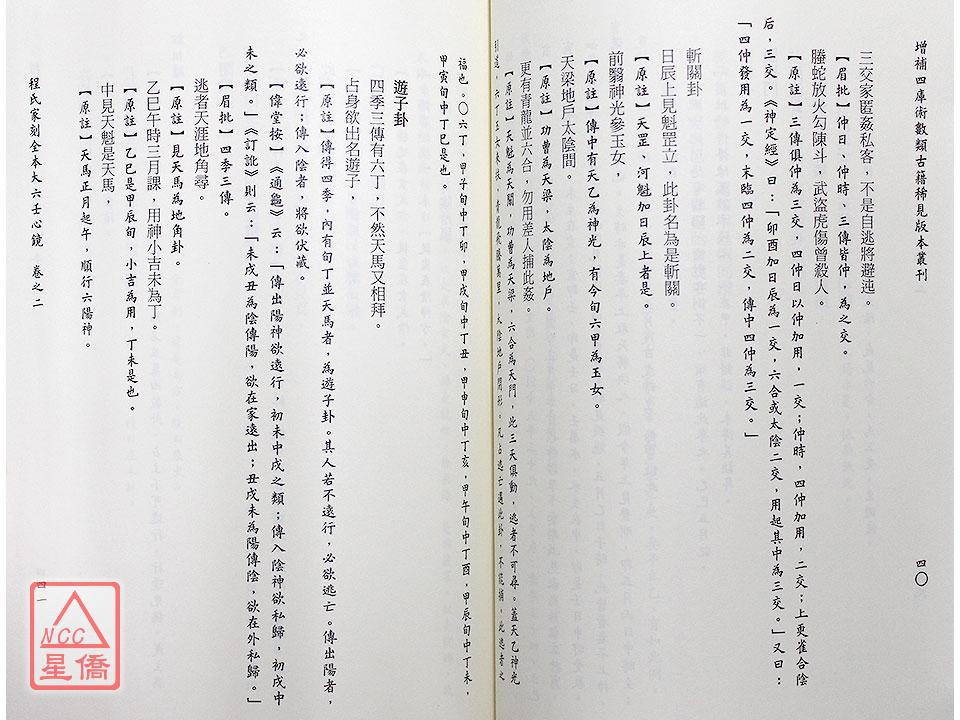 增補四庫術數類古籍稀見版本叢刊
四〇
三交家匿姦私客，不是自逃將避迍。
【眉批】仲日、仲時、三傳皆仲，為之交。
螣蛇放火勾陳斗，武盜虎傷曾殺人。
【原註】三傳俱仲為三交，四仲日以仲加用，一交；仲時，四仲加用，二交；上更雀合陰
后，三交。《神定經》曰：「卯酉加日辰為一交，六合或太陰二交，用起其中為三交。」又曰：
「四仲發用為一交，末臨四仲為二交，傳中四仲為三交。」
斬關卦
日辰上見魁罡立，此卦名為是斬關。
【原註】天罡、河魁加日辰上者是。
前翳神光參玉女，
【原註】傳中有天乙為神光，有今旬六甲為玉女。
天梁地戶太陰間。
【原註】功曹為天梁，太陰為地戶。
更有青龍並六合，勿用差人捕此姦。
【原註】天魁為天關，功曹為天梁，六合為天門，此三天俱動，逃者不可尋。蓋天乙神光
青龍飛騰萬里，太陰地戶閉形。凡占逃亡遇此卦，不能捕。此逃者之
福也。〇六丁，甲子旬中丁卯，甲戌旬中丁丑，甲申旬中丁亥，甲午旬中丁酉，甲辰旬中丁未，
甲寅旬中丁巳是也。
遊子卦
四季三傳有六丁，不然天馬又相拜。
占身欲出名遊子，
【原註】傳得四季，內有旬丁並天馬者，為遊子卦。其人若不遠行，必欲逃亡。傳出陽者，
必欲遠行；傳入陰者，將欲伏藏。
【偉堂按】《通龜》云：「傳出陽神欲遠行，初未中戌之類；傳入陰神欲私歸，初戌中
未之類。」《訂訛》則云：「未戌丑為陰傳陽，欲在家遠出；丑戌未為陽傳陰，欲在外私歸。」
【眉批】四季三傳。
逃者天涯地角尋。
【原註】見天馬為地角卦。
乙巳午時三月課，用神小吉未為丁。
【原註】乙巳是甲辰旬，小吉為用，丁未是也。
中見天魁是天馬，
【原註】天馬正月起午，順行六陽神。
程氏家刻全本大六壬心鏡 卷之二
四一
NCC
星僑